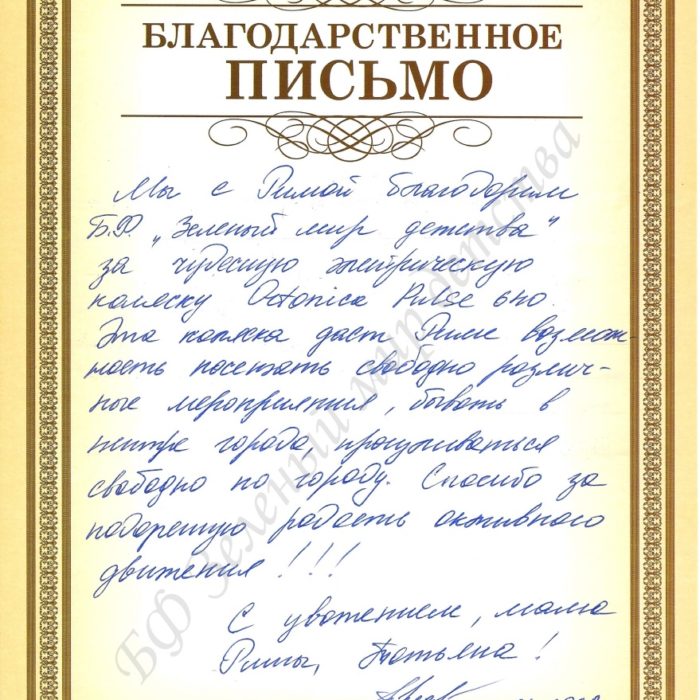 БЛАГОДАРСТВЕННОЕ
ПИСЬМО
Мы с Римой благодарим
Б.Ф. „Зеленый мир детства“
за чудесную электрическую
коляску Ortonica Pulse 640.
Эта коляска даст Риме возмож-
ность посещать свободно различ-
ные мероприятия, бывать в
центре города, прогуливаться
свободно по городу. Спасибо за
подаренную радость активного
движения!!!
С уважением, мама
Римы, Татьяна!
БФ Зеленный мир детства